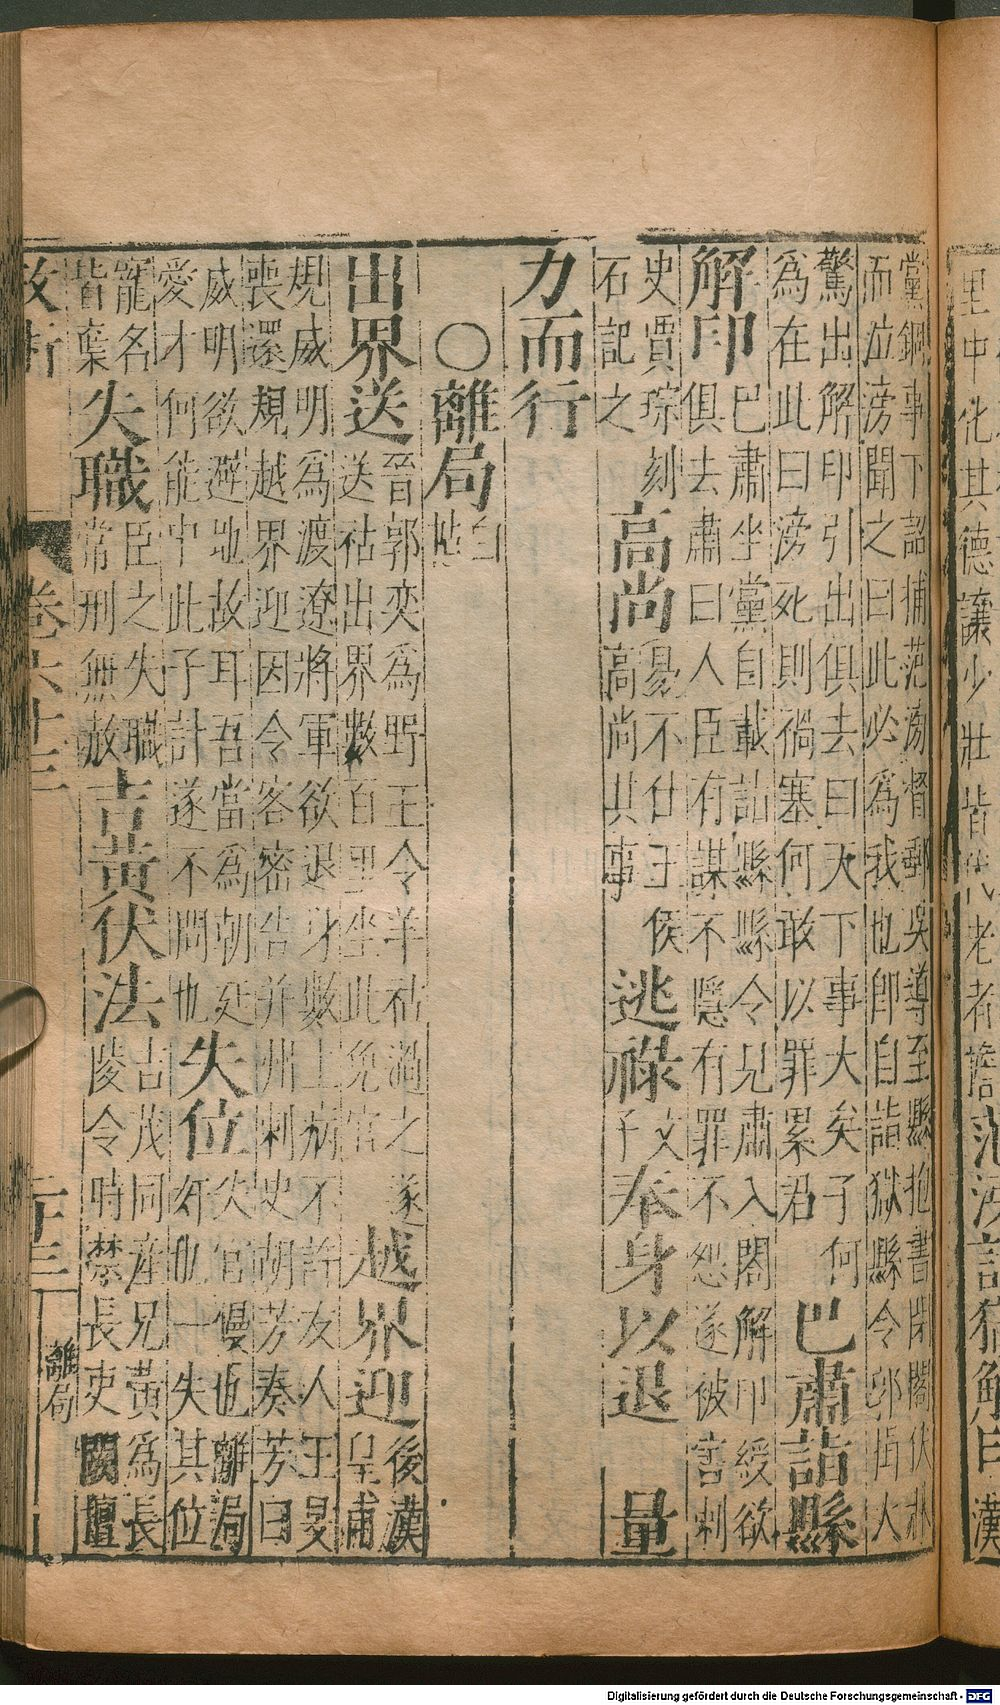 里中化其德讓少壯皆代老者擔
范滂詣獄解印漢
黨錮事下詔捕范滂督郵吳導至縣抱書閉閤伏牀
而泣滂聞之曰此必為我也即自詣獄縣令郭揖大
驚出解印引出俱去曰天下事大矣子何
為在此曰滂死則禍塞何敢以罪累君
巴肅詣縣
解印
巴肅坐黨自載詣縣縣令見肅入閤解印綬欲
俱去肅曰人臣有謀不隱有罪不怨遂被害刺
史賈琮刻
石記之
高尚
易不仕王侯
高尚其事
逃祿
文
子
奉身以退
量
力而行
○離局
白
帖
出界送
晉郭奕為野王令羊祜過之遂
送祜出界數百里坐此免官
越界迎
後漢
皇甫
規威明為渡遼將軍欲退身數上病不許友人王旻
喪還規越界迎因令客密告并州刺史胡芳奏芳曰
威明欲避地故耳吾當為朝廷
愛才何能中此子計遂不問也
失位
失官慢也離局
奸也一失其位
寵名
皆棄
失職
臣之失職
常刑無赦
吉黃伏法
吉茂同產兄黃為長
陵令時禁長吏
闕壇
故斯
卷六十三
二十三
離局
Digitalisierung gefördert durch die Deutsche Forschungsgemeinschaft - DFG